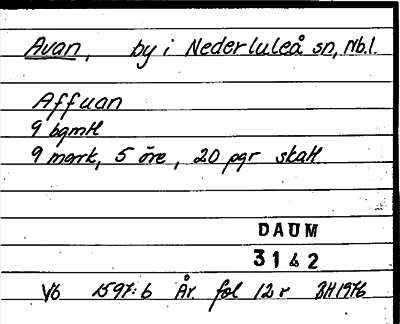 Avan, by i Nederluleå sn, Nb.l.
Affuan
9 bgmtl
9 mark, 5 öre, 20 pgr skatt
DAUM
3142
Vb 1597:6 År fol 12r BH1976